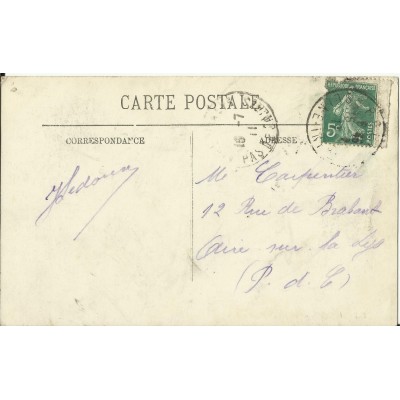 CARTE POSTALE
CORRESPONDANCE
ADRESSE
REPUBLIQUE FRANÇAISE
5c
POSTES
16-7
11
PAS
M Carpentier
12 Rue de Brabant
Aire sur la Lys
(P. d. C)